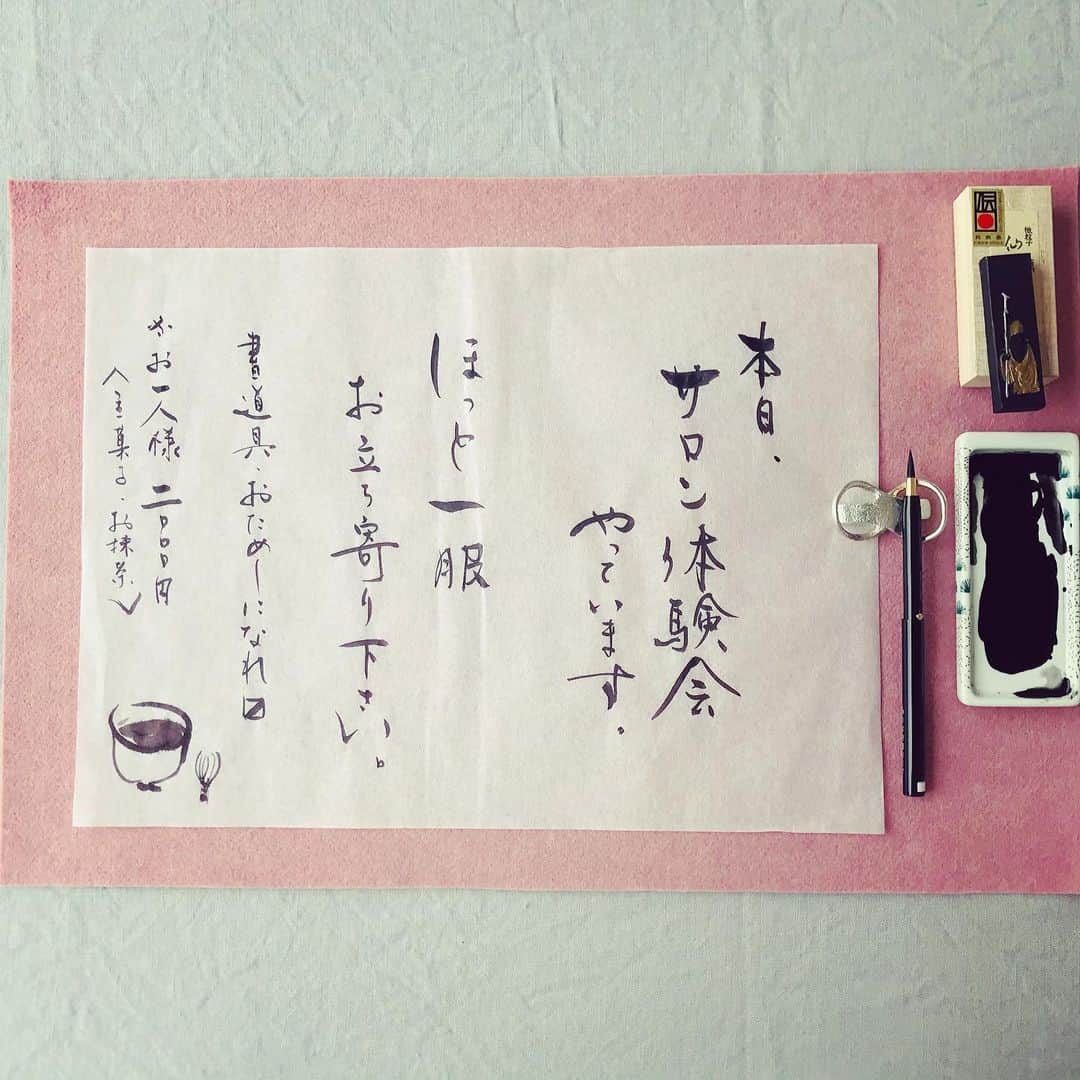 本日、
サロン体験会
やっています。
ほっと一服
お立ち寄り下さい。
書道具・おためしになれ〼
お一人様 二〇〇〇円
〈主菓子・お抹茶〉
伝
仙